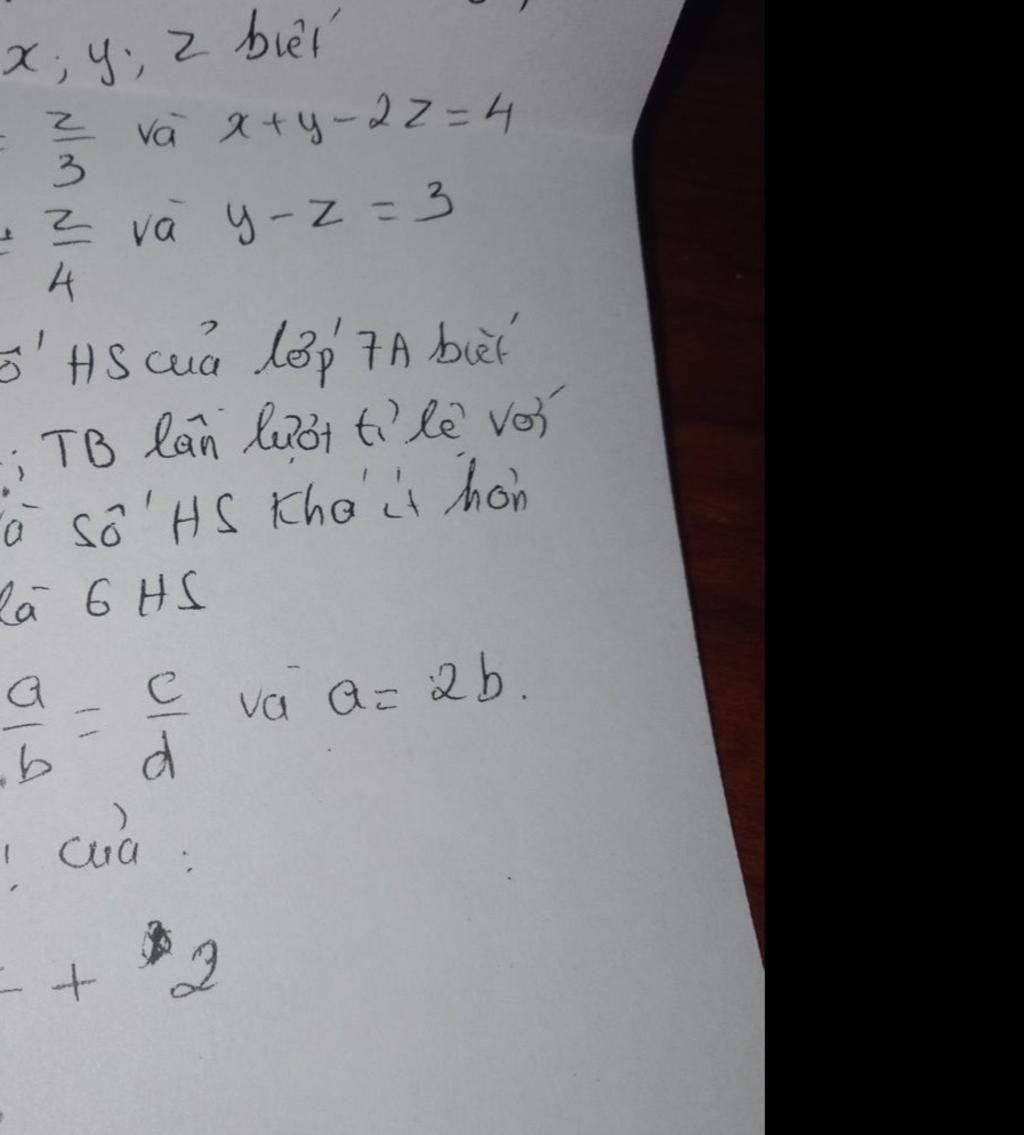 x; y; z biết
= z/3 và x + y - 2z = 4
= z/4 và y - z = 3
HS của lớp 7A biết
; TB lần lượt tỉ lệ với
số HS khá ít hơn
là 6 HS
a/b = c/d và a = 2b.
của :
+ 2